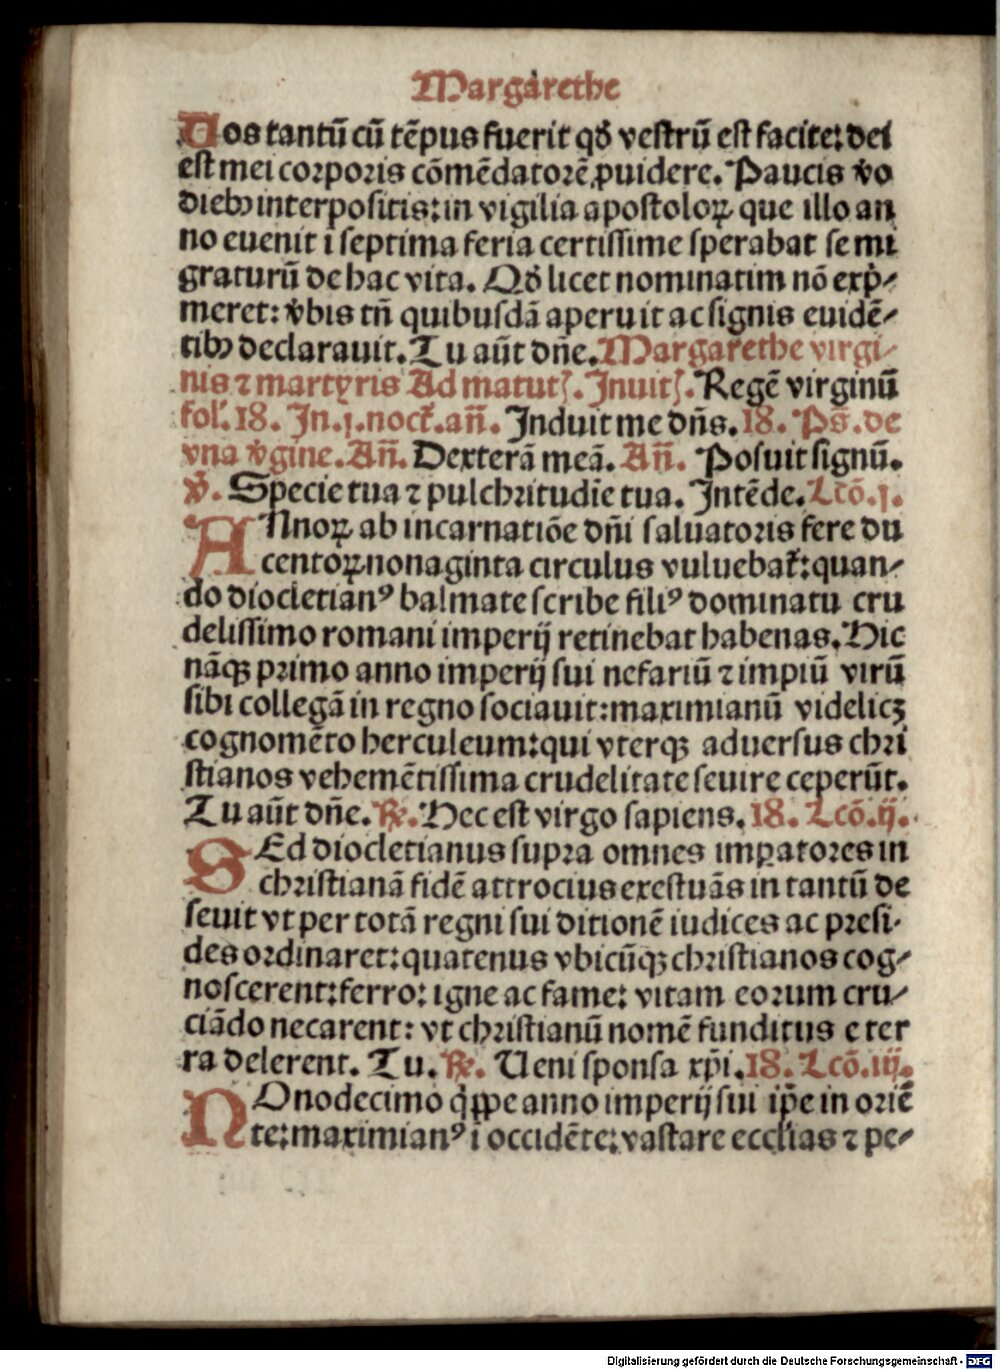 Margarethe
Uos tantū cū tēpus fuerit qđ vestrū est facite: dei
est mei corporis cōmēdatorē ꝓuidere. Paucis v̾o
diebꝰ interpositis: in vigilia apostoloꝝ que illo an
no euenit i septima feria certissime sperabat se mi
graturū de hac vita. Qđ licet nominatim nō exp̾-
meret: v̾bis tn̄ quibusdā aperuit ac signis euidē-
tibꝰ declarauit. Tu aūt dn̄e. Margarethe virgi-
nis ⁊ martyris Ad matutꝭ. Inuitꝭ. Regē virginū
fol. 18. In .j. noct̄. an̄. Induit me dn̄s. 18. Ps̄. de
vna v̾gine. An̄. Dexterā meā. An̄. Posuit signū.
v̾. Specie tua ⁊ pulchritudīe tua. Intēde. Lcō. j.
ANnoꝝ ab incarnatiōe dn̄i saluatoris fere du
centoꝝ nonaginta circulus vuluebat̄: quan-
do diocletianꝰ dalmate scribe filiꝰ dominatu cru
delissimo romani imperij retinebat habenas. Hic
nāqꝫ primo anno imperij sui nefariū ⁊ impiū virū
sibi collegā in regno sociauit: maximianū videlicꝫ
cognomēto herculeum: qui vterqꝫ aduersus chri
stianos vehemētissima crudelitate seuire ceperūt.
Tu aūt dn̄e. ℞. Hec est virgo sapiens. 18. Lcō. ij.
SEd diocletianus supra omnes imꝑatores in
christianā fidē attrocius exestuās in tantū de
seuit vt per totā regni sui ditionē iudices ac presi-
des ordinaret: quatenus vbicūqꝫ christianos cog-
noscerent: ferro: igne ac fame: vitam eorum cru-
ciādo necarent: vt christianū nomē funditus e ter
ra delerent. Tu. ℞. Ueni sponsa xp̄i. 18. Lcō. iij.
NOnodecimo q̾ppe anno imperij sui ip̄e in oriē
te: maximianꝰ i occidēte: vastare eccl̄ias ⁊ pe-
Digitalisierung gefördert durch die Deutsche Forschungsgemeinschaft - DFG